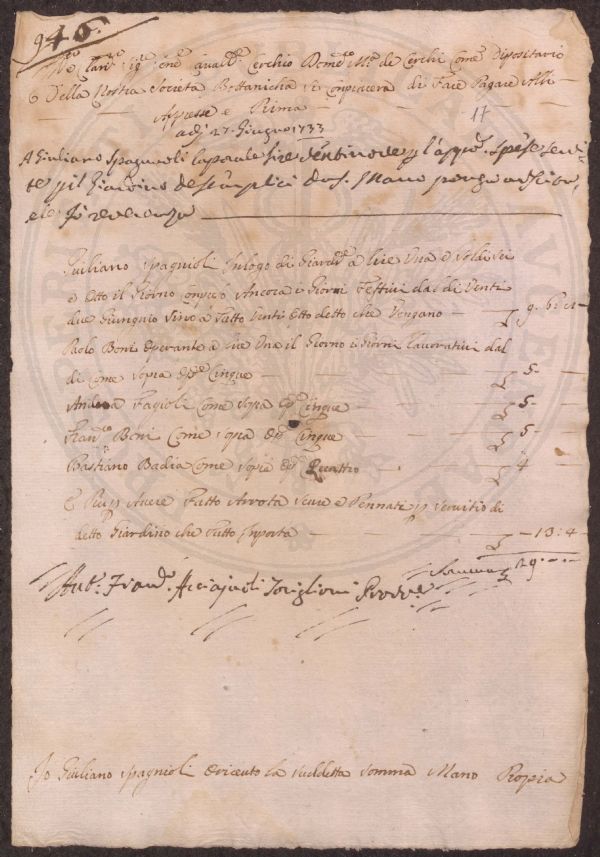 946.
Cerchio Dom:co M:a de Cerchi Come Dipositario
Della Nostra Società Bottanicha si Compiacerà di Fare Pagare All
Appresse e Prima
17
adj 27. Giugno 1733
A Giuliano Spagnuoli Caporale lire Ventinove p l'appo. Spese
te p il Giardino de Semplici di S. Marco
Giuliano Spagnioli In logo di Giard:e a lire Una e Soldi Sei
e Otto il Giorno Compreso Ancora i Giorni Festivi dal di Venti
due Giungnio Sino a Tutto Venti Otto detto che Vengano — 9. 6: 8
Paolo Boni Operante a lire Una il Giorno i Giorni Lavorativi dal
di Come Sopra Op:e Cinque — 5 –
Andrea Fagioli Come Sopra Op:e Cinque — 5 –
Fran:co Boni Come Sopra Op:e Cinque — 5 –
Bastiano Badia Come Sopra Op:e Quattro — 4 –
E Più p Avere Fatto Arrotà Scure e Pennate p Servitio di
detto Giardino che Tutto Inporta — – 13: 4
Somma 29 – –
Ant:o Acciajuoli Toriglioni Provv:e
Io Giuliano Spagnioli O riceuto la Suddetta Somma Mano Propia